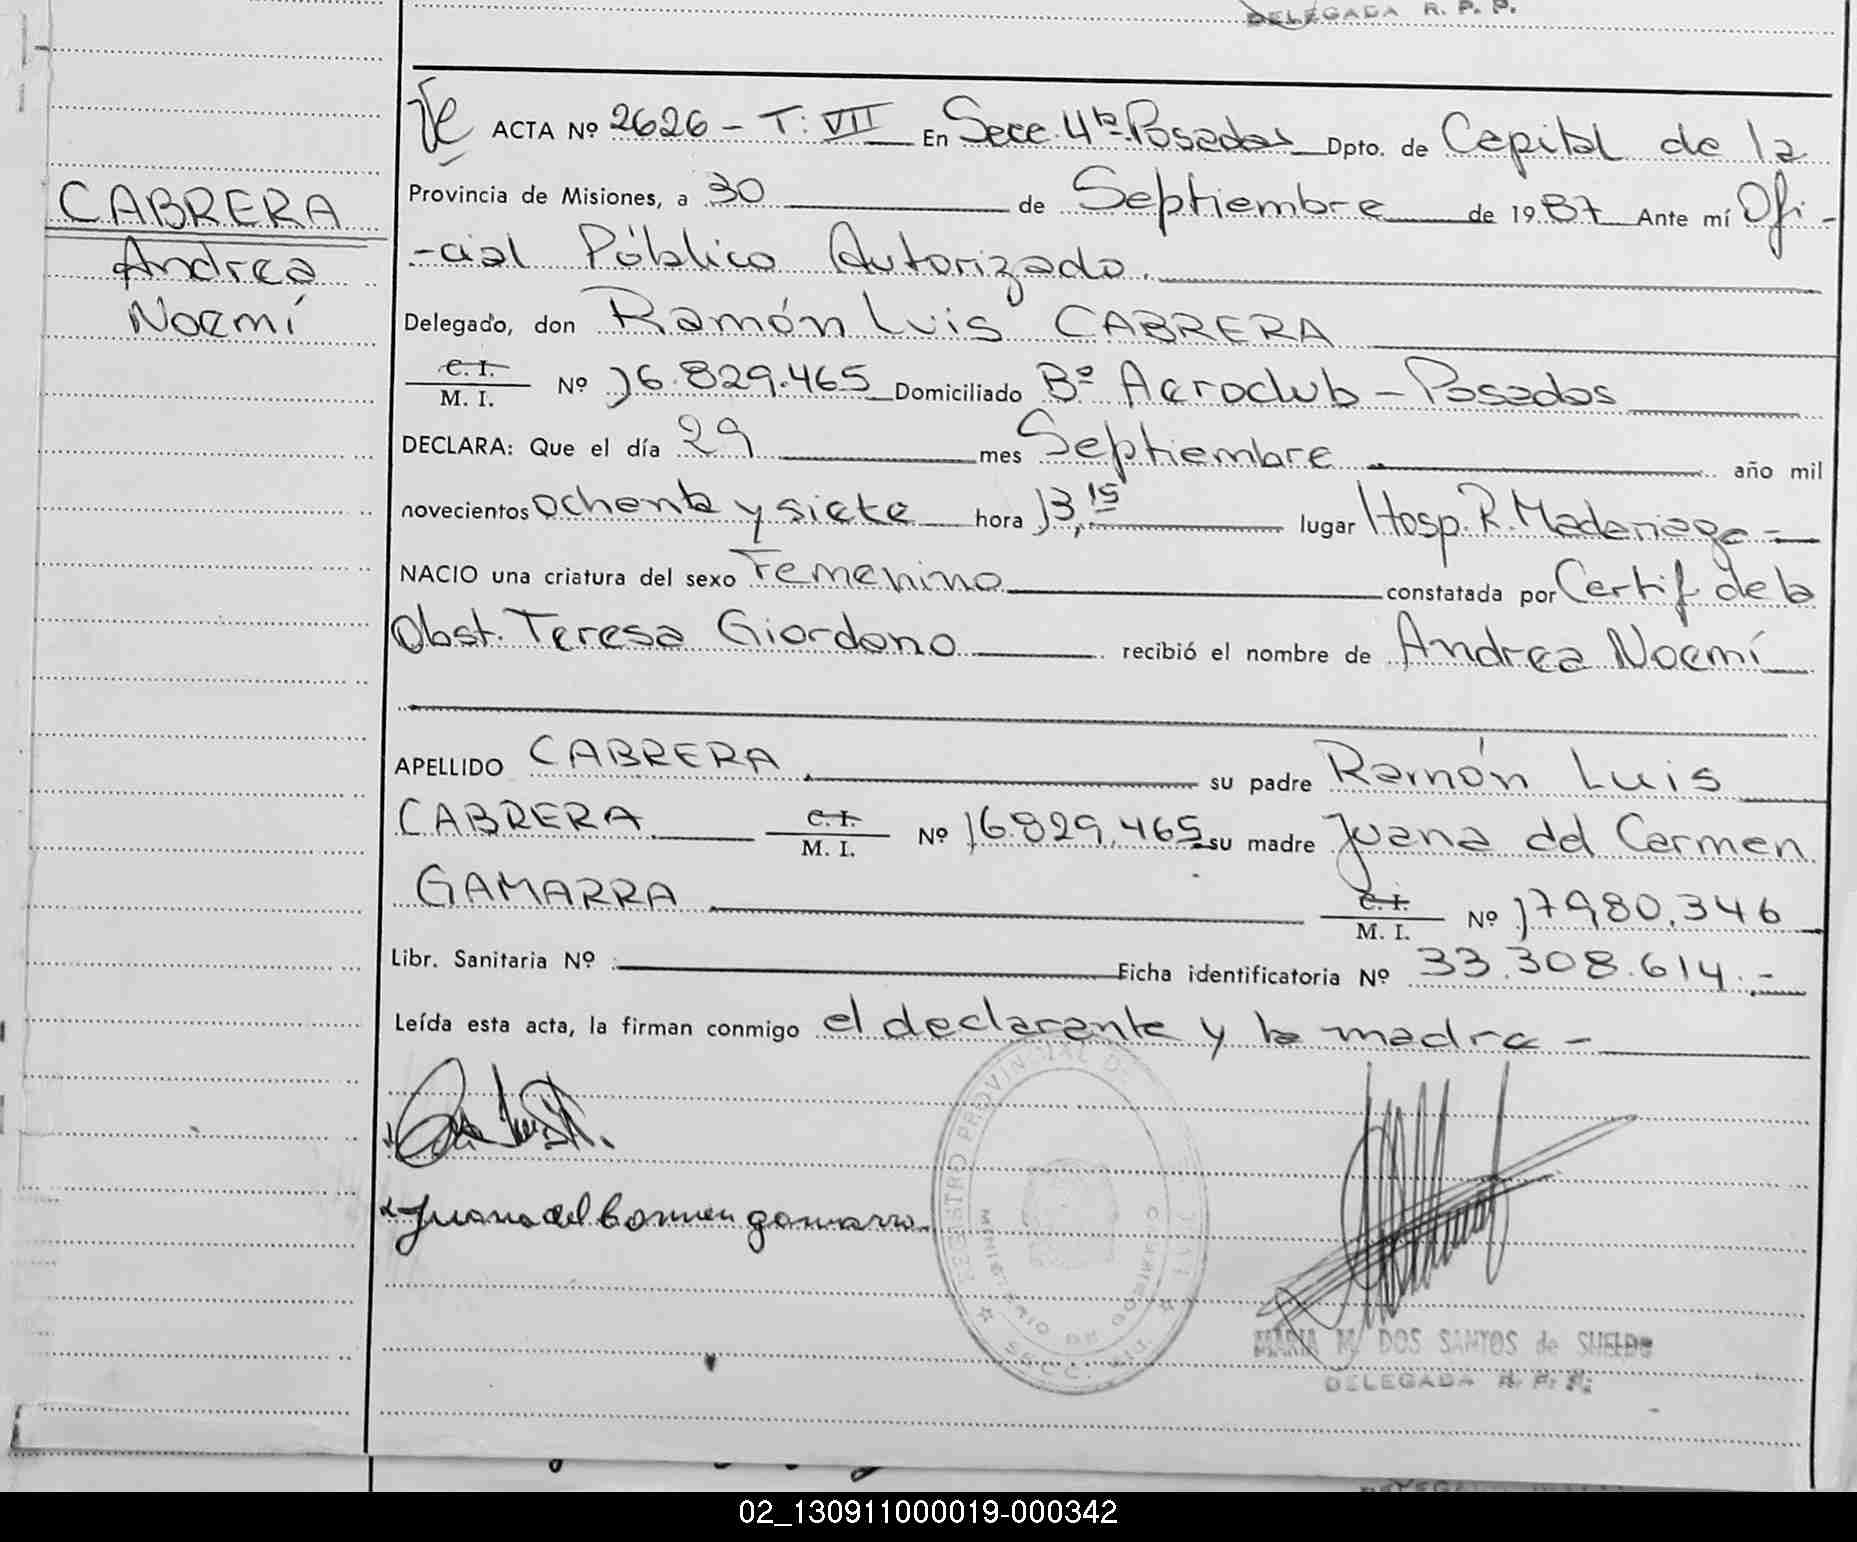 DELEGADA R. P. P.
CABRERA
Andrea
Noemí
ACTA Nº 2626 - T: VII En Secc. 4ta. Posadas Dpto. de Capital de la
Provincia de Misiones, a 30 de Septiembre de 1987 Ante mí Ofi-
-cial Público Autorizado.
Delegado, don Ramón Luis CABRERA
C. I.
M. I. Nº 16.829.465 Domiciliado Bº Aeroclub - Posadas
DECLARA: Que el día 29 mes Septiembre año mil
novecientos ochenta y siete hora 13,15 lugar Hosp. R. Madariaga
NACIO una criatura del sexo Femenino constatada por Certif. de la
Obst. Teresa Giordano recibió el nombre de Andrea Noemí
APELLIDO CABRERA su padre Ramón Luis
CABRERA C. I. M. I. Nº 16.829.465 su madre Juana del Carmen
GAMARRA C. I. M. I. Nº 17980.346
Libr. Sanitaria Nº Ficha identificatoria Nº 33.308.614.-
Leída esta acta, la firman conmigo el declarante y la madre -
Juana del Carmen gamarra
REGISTRO PROVINCIAL DE
MINISTERIO DE GOBIERNO
MARIA M. DOS SANTOS de
DELEGADA R. P. P.
02_130911000019-000342